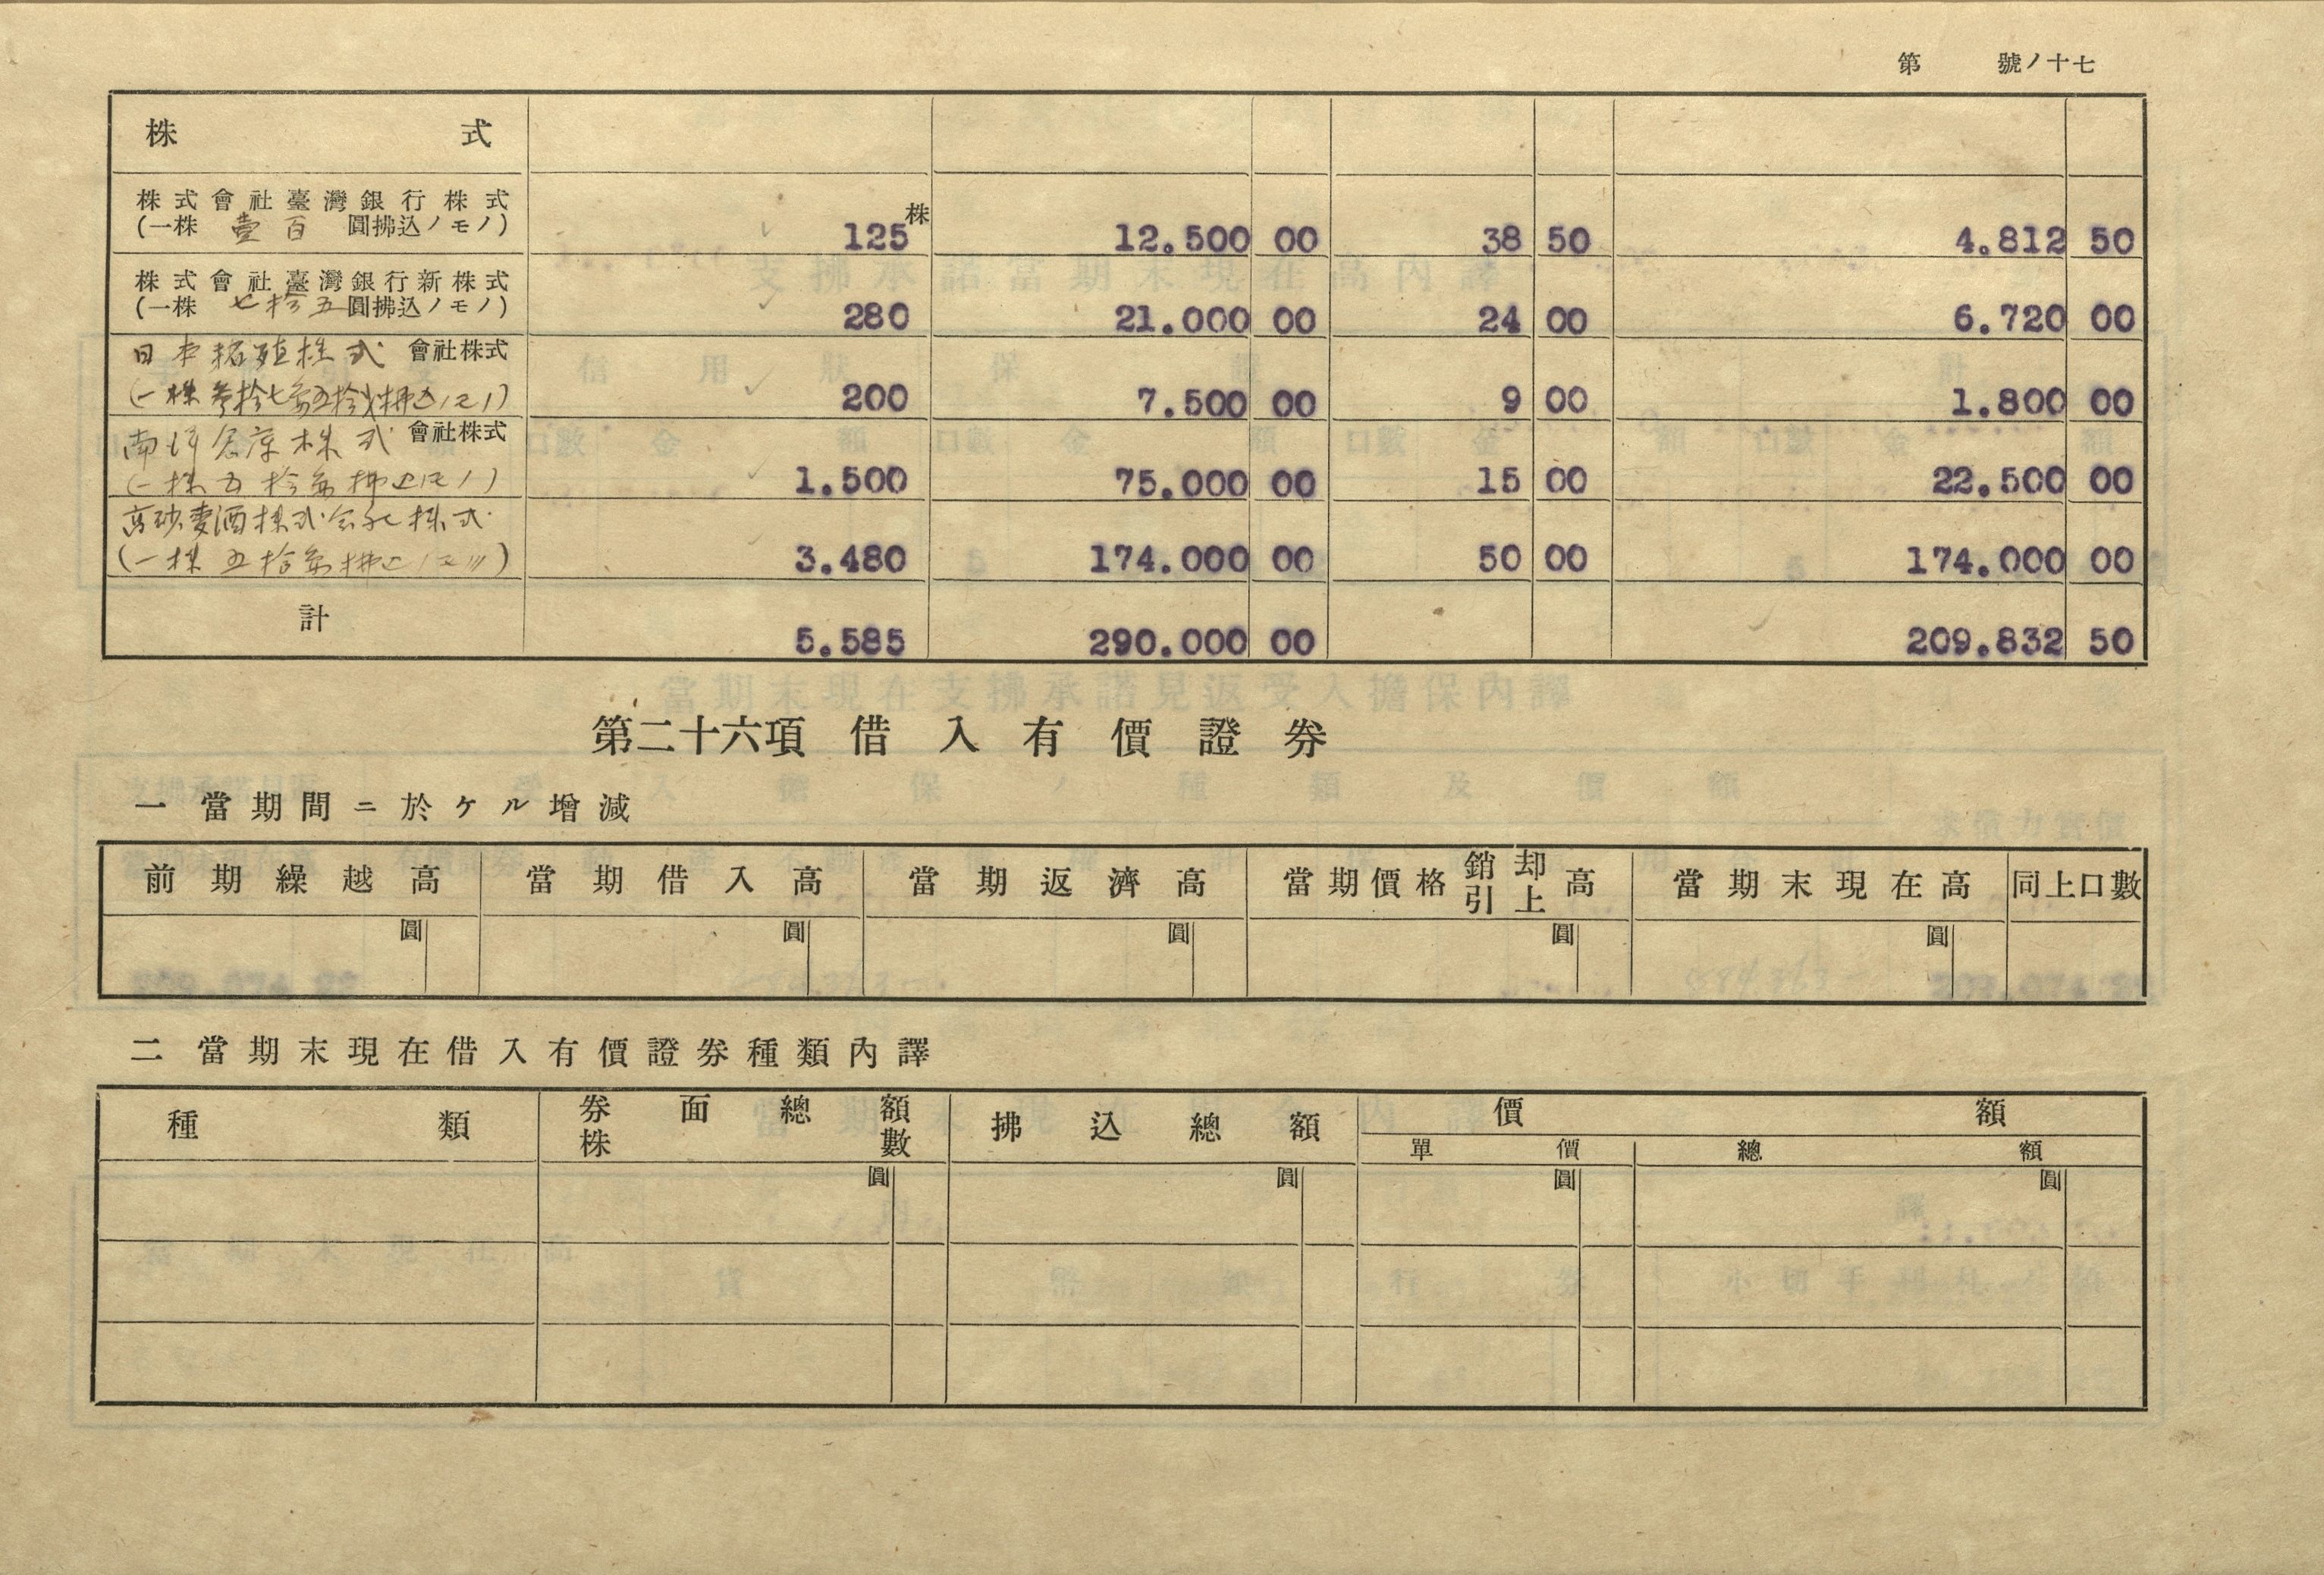 第 號ノ十七
株 式
株式會社臺灣銀行株式
(一株 壹百 圓拂込ノモノ) 125株 12.500 00 38 50 4.812 50
株式會社臺灣銀行新株式
(一株 七拾五 圓拂込ノモノ) 280 21.000 00 24 00 6.720 00
日本拓殖株式 會社株式
(一株 參拾七圓五拾錢拂込ノモノ) 200 7.500 00 9 00 1.800 00
南洋倉庫株式 會社株式
(一株 五拾圓拂込ノモノ) 1.500 75.000 00 15 00 22.500 00
高砂麥酒株式会社株式
(一株 五拾圓拂込ノモノ) 3.480 174.000 00 50 00 174.000 00
計 5.585 290.000 00 209.832 50
第二十六項 借入有價證券
一 當期間ニ於ケル增減
前期繰越高 當期借入高 當期返濟高 當期價格銷却引上高 當期末現在高 同上口數
圓 圓 圓 圓 圓
二 當期末現在借入有價證券種類內譯
種類 券面總額 拂込總額 價額
株數 單價 總額
圓 圓 圓 圓